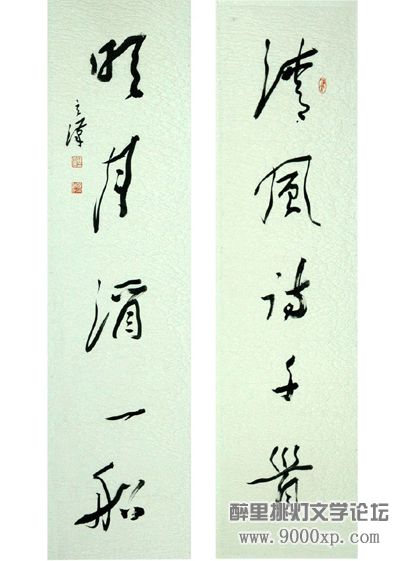 清風詩千首
明月酒一船
醉里挑灯文学论坛
www.9000xp.com